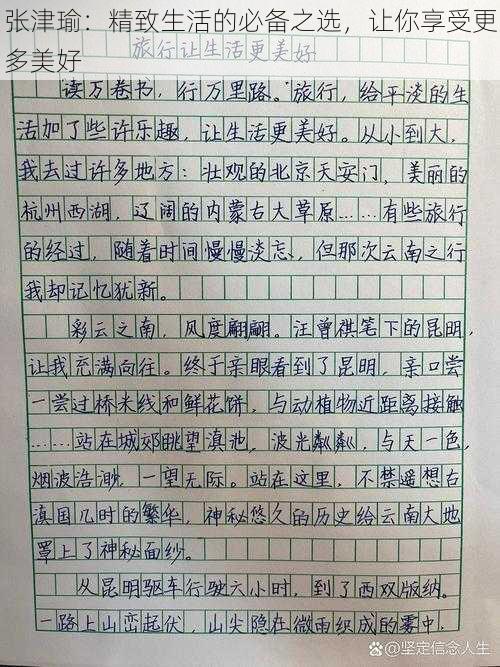 张津瑜：精致生活的必备之选，让你享受更
多美好
旅行让生活更美好
读万卷书，行万里路。旅行，给平淡的生
活加了些许乐趣，让生活更美好。从小到大，
我去过许多地方：壮观的北京天安门，美丽的
杭州西湖，辽阔的内蒙古大草原……有些旅行
的经过，随着时间慢慢淡忘，但那次云南之行
我却记忆犹新。
彩云之南，风度翩翩。汪曾祺笔下的昆明，
让我充满向往。终于亲眼看到了昆明，亲口尝
一尝过桥米线和鲜花饼，与动植物近距离接触
……站在城郊眺望滇池，波光粼粼，与天一色，
烟波浩渺，一望无际。站在这里，不禁遥想古
滇国几时的繁华，神秘悠久的历史给云南大地
罩上了神秘面纱。
从昆明驱车行驶六小时，到了西双版纳。
一路上山峦起伏，山尖隐在微雨织成的雾中，
@坚定信念人生